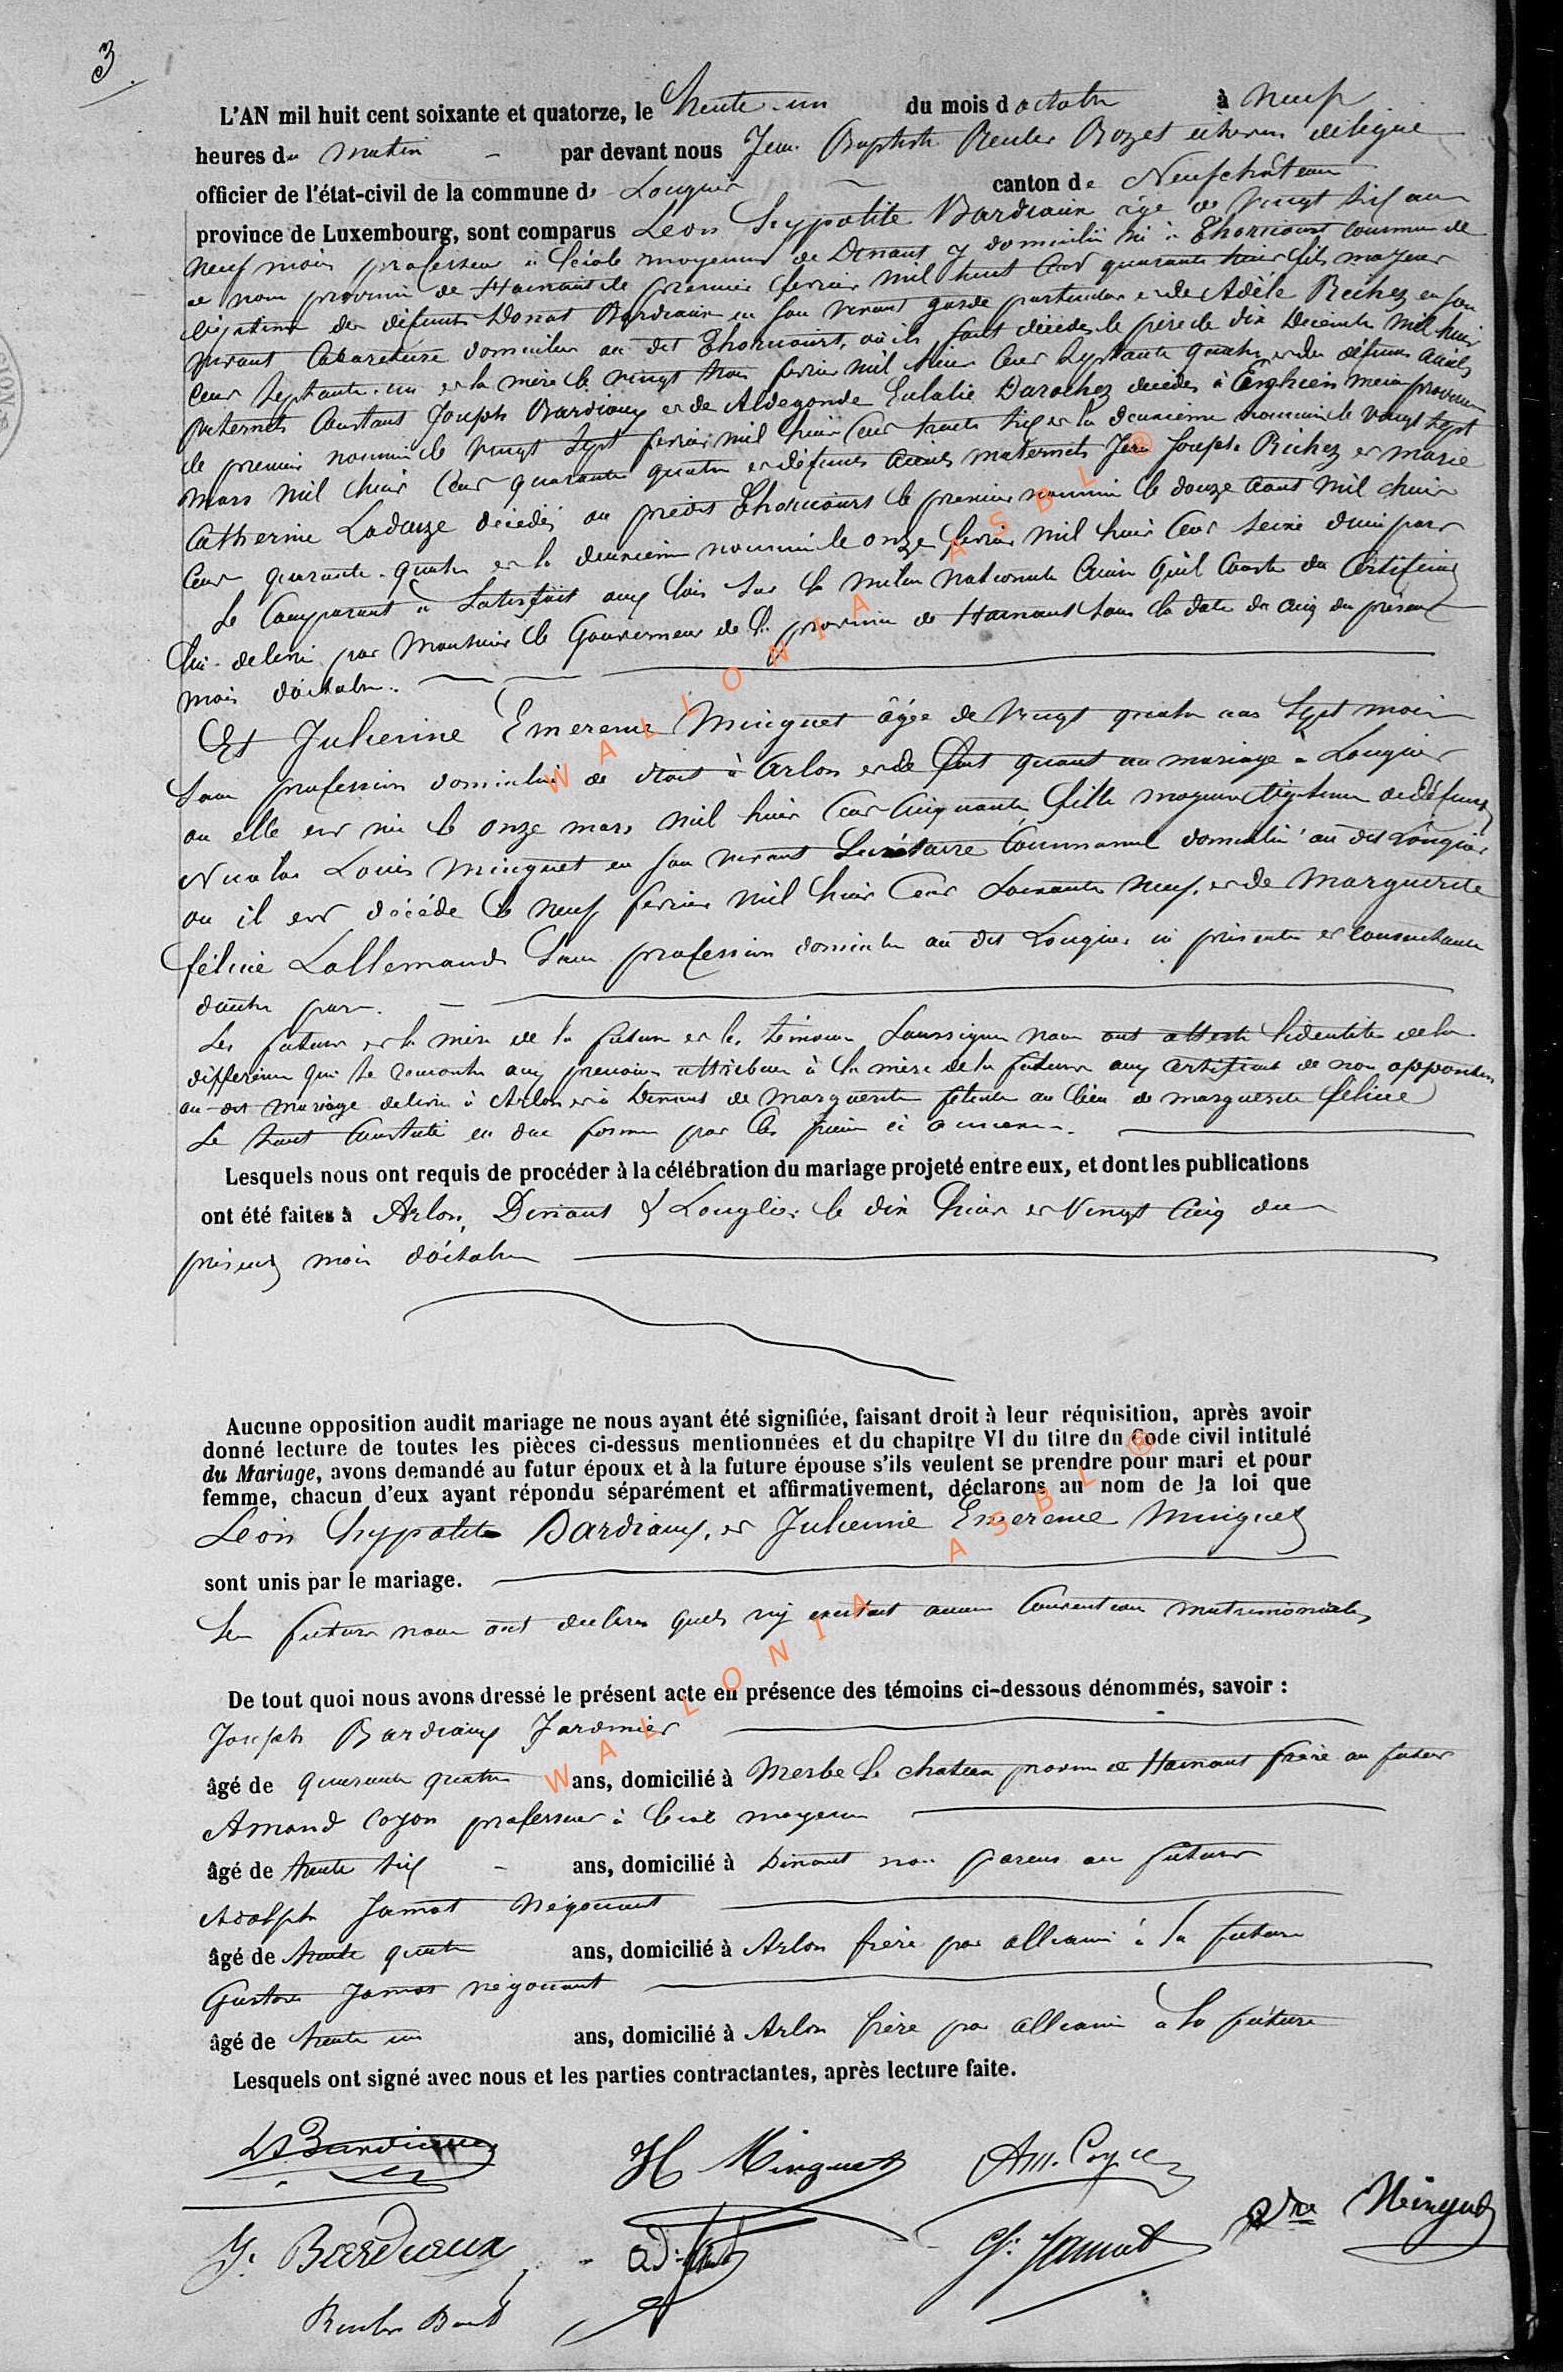 3.
L'AN mil huit cent soixante et quatorze, le trente-un du mois d octobre à neuf
heures du matin par devant nous Jean Baptiste Reuler Rozet échevin délégué
officier de l'état-civil de la commune de Longlier canton de Neufchâteau
province de Luxembourg, sont comparus Léon Hyppolite Bardiaux âgé de vingt six ans
neuf mois professeur à l'école moyenne de Dinant y domicilié né à Thoricourt commune de
ce nom province de Hainaut le premier février mil huit cent quarante huit fils majeur
légitime des défunts Donat Bardiaux en son vivant garde particulier et de Adèle Richez en son
vivant domiciliés au dit Thoricourt, où ils sont décédés le père le dix Décembre mil huit
cent septante-un et la mère le vingt trois février mil huit cent septante quatre et des défunts aieuls
paternels Constant Joseph Bardiaux et de Aldegonde Eulalie Darochez décédés à Enghien même province
le premier nommé le vingt sept février mil huit cent trente six et la deuxième nommée le vingt sept
mars mil huit cent quarante quatre et défunts aieuls maternels Jean Joseph Richez et marie
Catherine Ladeuze décédés au prédit Thoricourt le premier nommé le douze aout mil huit
cent quarante-quatre et la deuxième nommée le onze février mil huit cent seize d'une part
Le Comparant a satisfait aux lois sur la milice nationale ainsi qu'il conste du certificat
lui délivré par Monsieur le Gouverneur de la province de Hainaut sous la date du cinq du présent
mois d'octobre.
Et Julienne Emerence Minguet âgée de vingt quatre ans sept mois
sans profession domiciliée de droit à Arlon et de fait quant au mariage à Longlier
ou elle est née le onze mars mil huit cent cinquante, fille majeure légitime de défunt
Nicolas Louis Minguet en son vivant Secrétaire Communal domicilié au dit Longlier
ou il est décédé le neuf février mil huit cent soixante neuf, et de Marguerite
félicie Lallemand sans profession domiciliée au dit Longlier ici présente et consentante
d'autre part.
Les futurs et la mère de la future et les témoins soussignés nous ont attesté l'identité de la
différence qui se rencontre aux prénoms attribués à la mère de la future aux certificats de non opposition
au dit mariage délivrés à Arlon et à Dinant de Marguerite au lieu de marguerite félicie
Le tout constaté en due forme par les pièces ci
Lesquels nous ont requis de procéder à la célébration du mariage projeté entre eux, et dont les publications
ont été faites à Arlon, Dinant & Longlier le dix huit et vingt cinq du
présent mois d'octobre
Aucune opposition audit mariage ne nous ayant été signifiée, faisant droit à leur réquisition, après avoir
donné lecture de toutes les pièces ci-dessus mentionnées et du chapitre VI du titre du Code civil intitulé
du Mariage, avons demandé au futur époux et à la future épouse s'ils veulent se prendre pour mari et pour
femme, chacun d'eux ayant répondu séparément et affirmativement, déclarons au nom de la loi que
Léon hyppolite Bardiaux, et Julienne Emerence Minguet
sont unis par le mariage.
Les futurs nous ont déclaré qu'il n'y existait aucune convention matrimoniale,
De tout quoi nous avons dressé le présent acte en présence des témoins ci-dessous dénommés, savoir :
Joseph Bardiaux Jardinier
âgé de quarante quatre ans, domicilié à Merbe le chateau province de Hainaut frère au futur
Amand Coyon professeur à l'école moyenne
âgé de trente six ans, domicilié à Dinant non parent au futurs
Adolphe Jamot négociant
âgé de trente quatre ans, domicilié à Arlon frère par alliance à la future
Gustave Jamot négociant
âgé de trente un ans, domicilié à Arlon frère par alliance à la future
Lesquels ont signé avec nous et les parties contractantes, après lecture faite.
L Bardiaux Minguet Am. Coyon
J. Bardiaux G. Jamot Vve Minguet
WALLONIA ASBL ®
WALLONIA ASBL ®